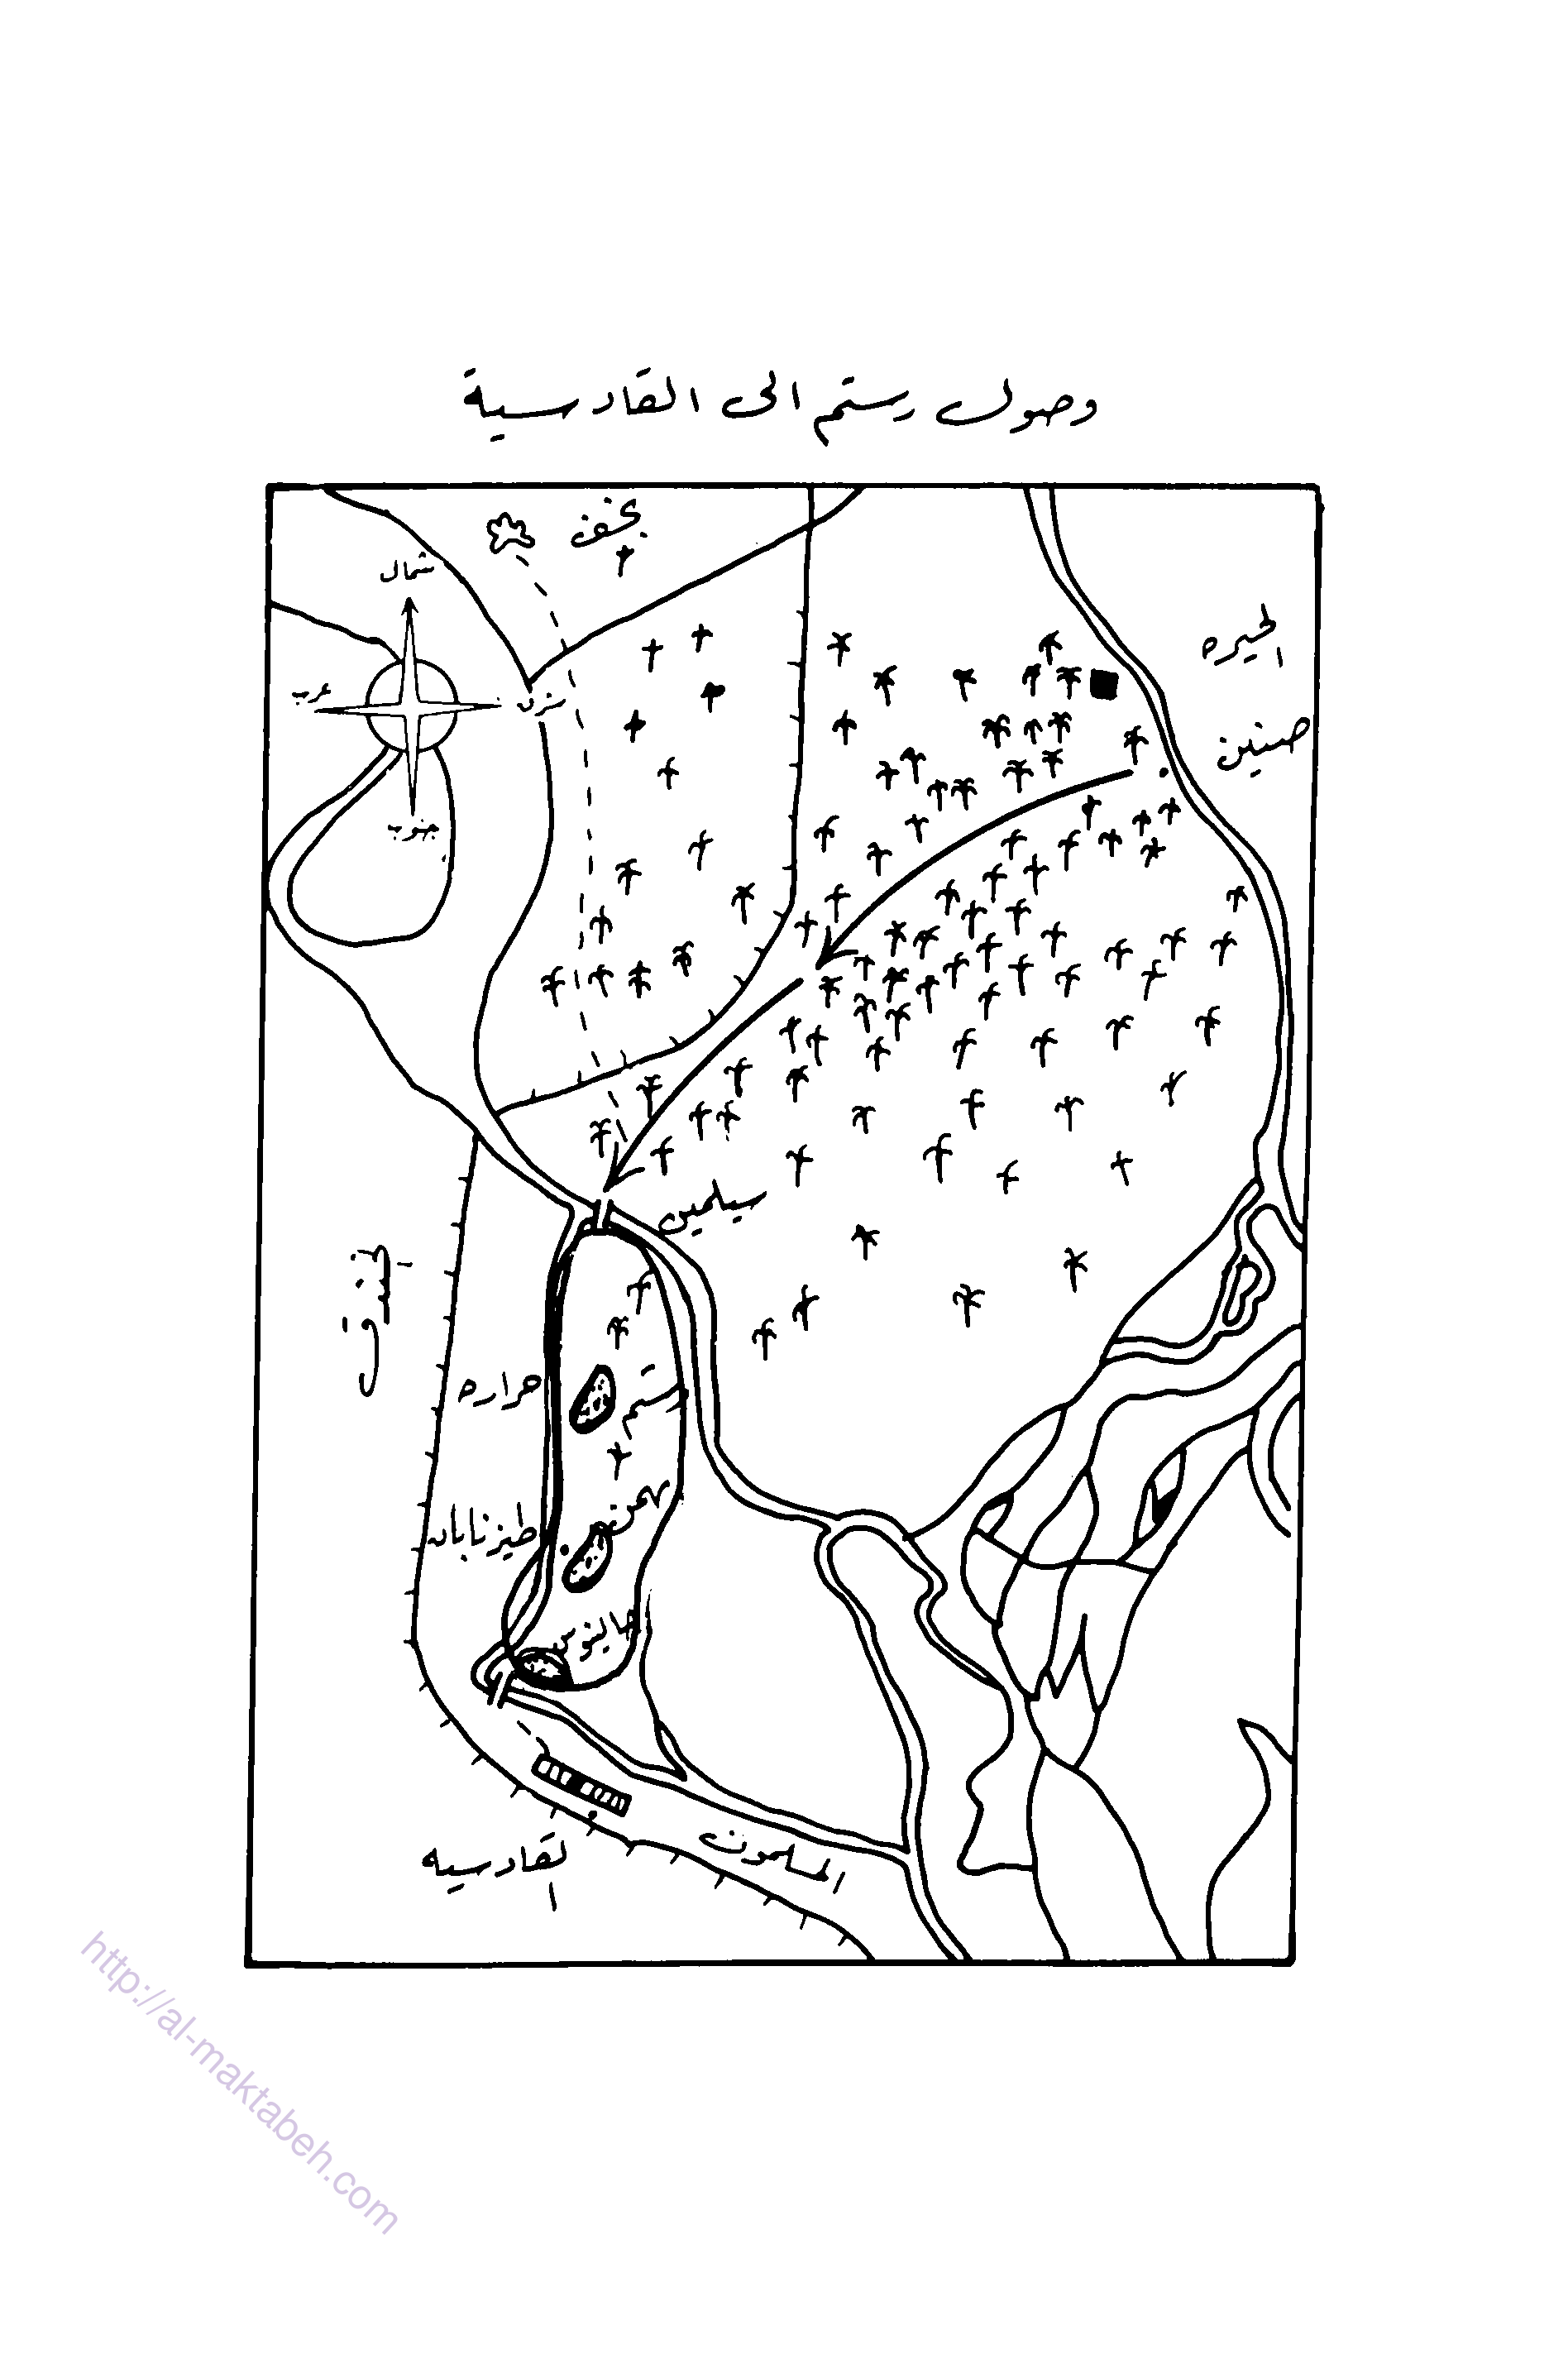 وصول رستم الى القادسية
نجف
شمال
الحيره
غرب
شرق
صنين
جنوب
سيلحين
الخندق
خراره
رستم
بهمن
طيزناباد
جالنوس
القادسيه
المسلمون
http://al-maktabeh.com